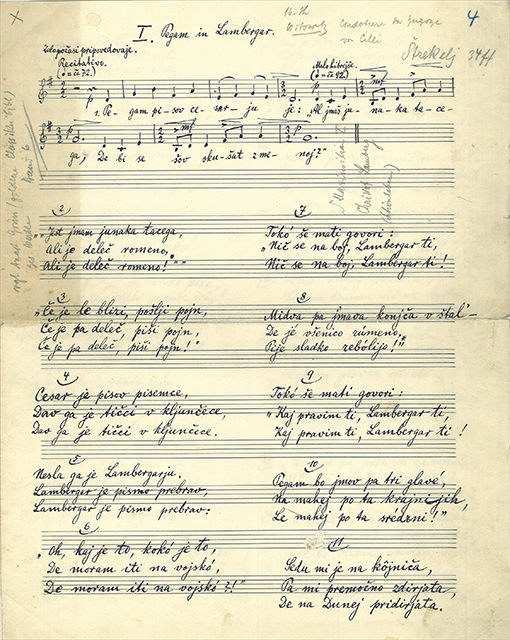 16. Th
4
I. Pegam in Lambergar.
von Celli
Štrekelj
34ff
Zdegočasi pripovedovaje.
Recitativo.
(♩= ca 72.)
Malo hitrejše.
(♩= ca 92.)
1. Pe - gam pi - sov ce - sar - ju je: "Al jmaš ju - na - ka ta - ce -
ga, De bi se šov sku - šat z me - noj?"
2
"Jest jmam junaka tacega,
Ali je deleč romeno,
Ali je deleč romeno!""
3
"Če je le blizi, pošlji pojn,
Če je pa deleč, piši pojn,
Če je pa deleč, piši pojn!"
4
Cesar je pisov pisemce,
Dav ga je tičci v kljunčece,
Dav ga je tičci v kljunčece.
5
Nesla ga je Lambergarju.
Lamberger je pismo prebrav,
Lamberger je pismo prebrav:
6
"Oh, kaj je to, kokó je to,
De moram iti na vojskó,
De moram iti na vojskó?!"
7
Tokó še mati govori:
"Nič se na boj, Lambergar ti,
Nič se na boj, Lambergar ti!
8
Midva pa jmava konjča v štal'-
De jé všenico rúmeno,
Pije sladko rebólijo!"
9
Tokó še mati govori:
"Kaj pravim ti, Lambergar ti,
Kaj pravim ti, Lambergar ti!
10
Pegam bo jmov pa tri glavé,
Na mahej po ta krajni jih,
Le mahej po ta srédzni!"
11
Sedu mi je na kôjniča,
Pa mi premočno zdirjata,
De na Dunej pridirjata.